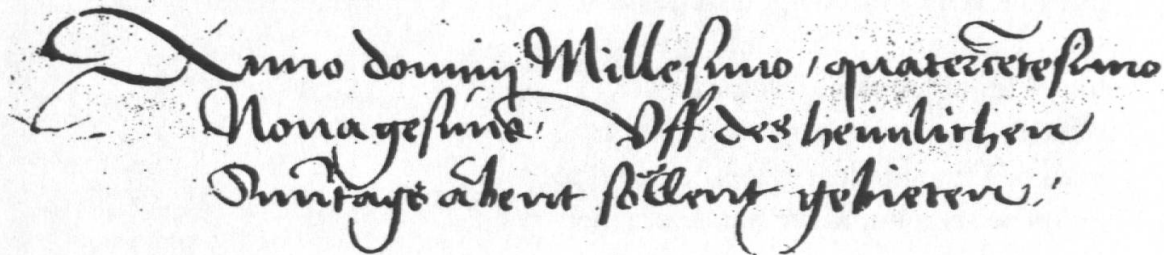 Anno dominj Millesimo / quatercẽtesimo
Nonagesimo / Vff des heimlichen
Sunñtags äbent söllent gebieten /